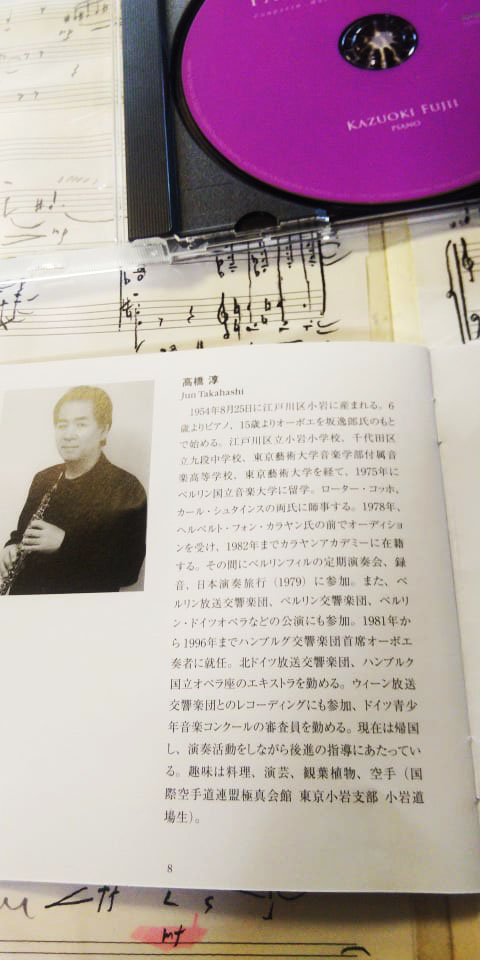 KAZUOKI FUJII
PIANO
mp
高橋 淳
Jun Takahashi
1954年8月25日に江戸川区小岩に産まれる。6
歳よりピアノ、15歳よりオーボエを坂逸郎氏のもと
で始める。江戸川区立小岩小学校、千代田区
立九段中学校、東京藝術大学音楽学部付属音
楽高等学校、東京藝術大学を経て、1975年に
ベルリン国立音楽大学に留学。ローター・コッホ、
カール・シュタインスの両氏に師事する。1978年、
ヘルベルト・フォン・カラヤン氏の前でオーディショ
ンを受け、1982年までカラヤンアカデミーに在籍
する。その間にベルリンフィルの定期演奏会、録
音、日本演奏旅行（1979）に参加。また、ベ
ルリン放送交響楽団、ベルリン交響楽団、ベルリ
ン・ドイツオペラなどの公演にも参加。1981年か
ら1996年までハンブルグ交響楽団首席オーボエ
奏者に就任。北ドイツ放送交響楽団、ハンブルク
国立オペラ座のエキストラを勤める。ウィーン放送
交響楽団とのレコーディングにも参加、ドイツ青少
年音楽コンクールの審査員を勤める。現在は帰国
し、演奏活動をしながら後進の指導にあたってい
る。趣味は料理、演芸、観葉植物、空手（国
際空手道連盟極真会館 東京小岩支部 小岩道
場生）。
8
mf